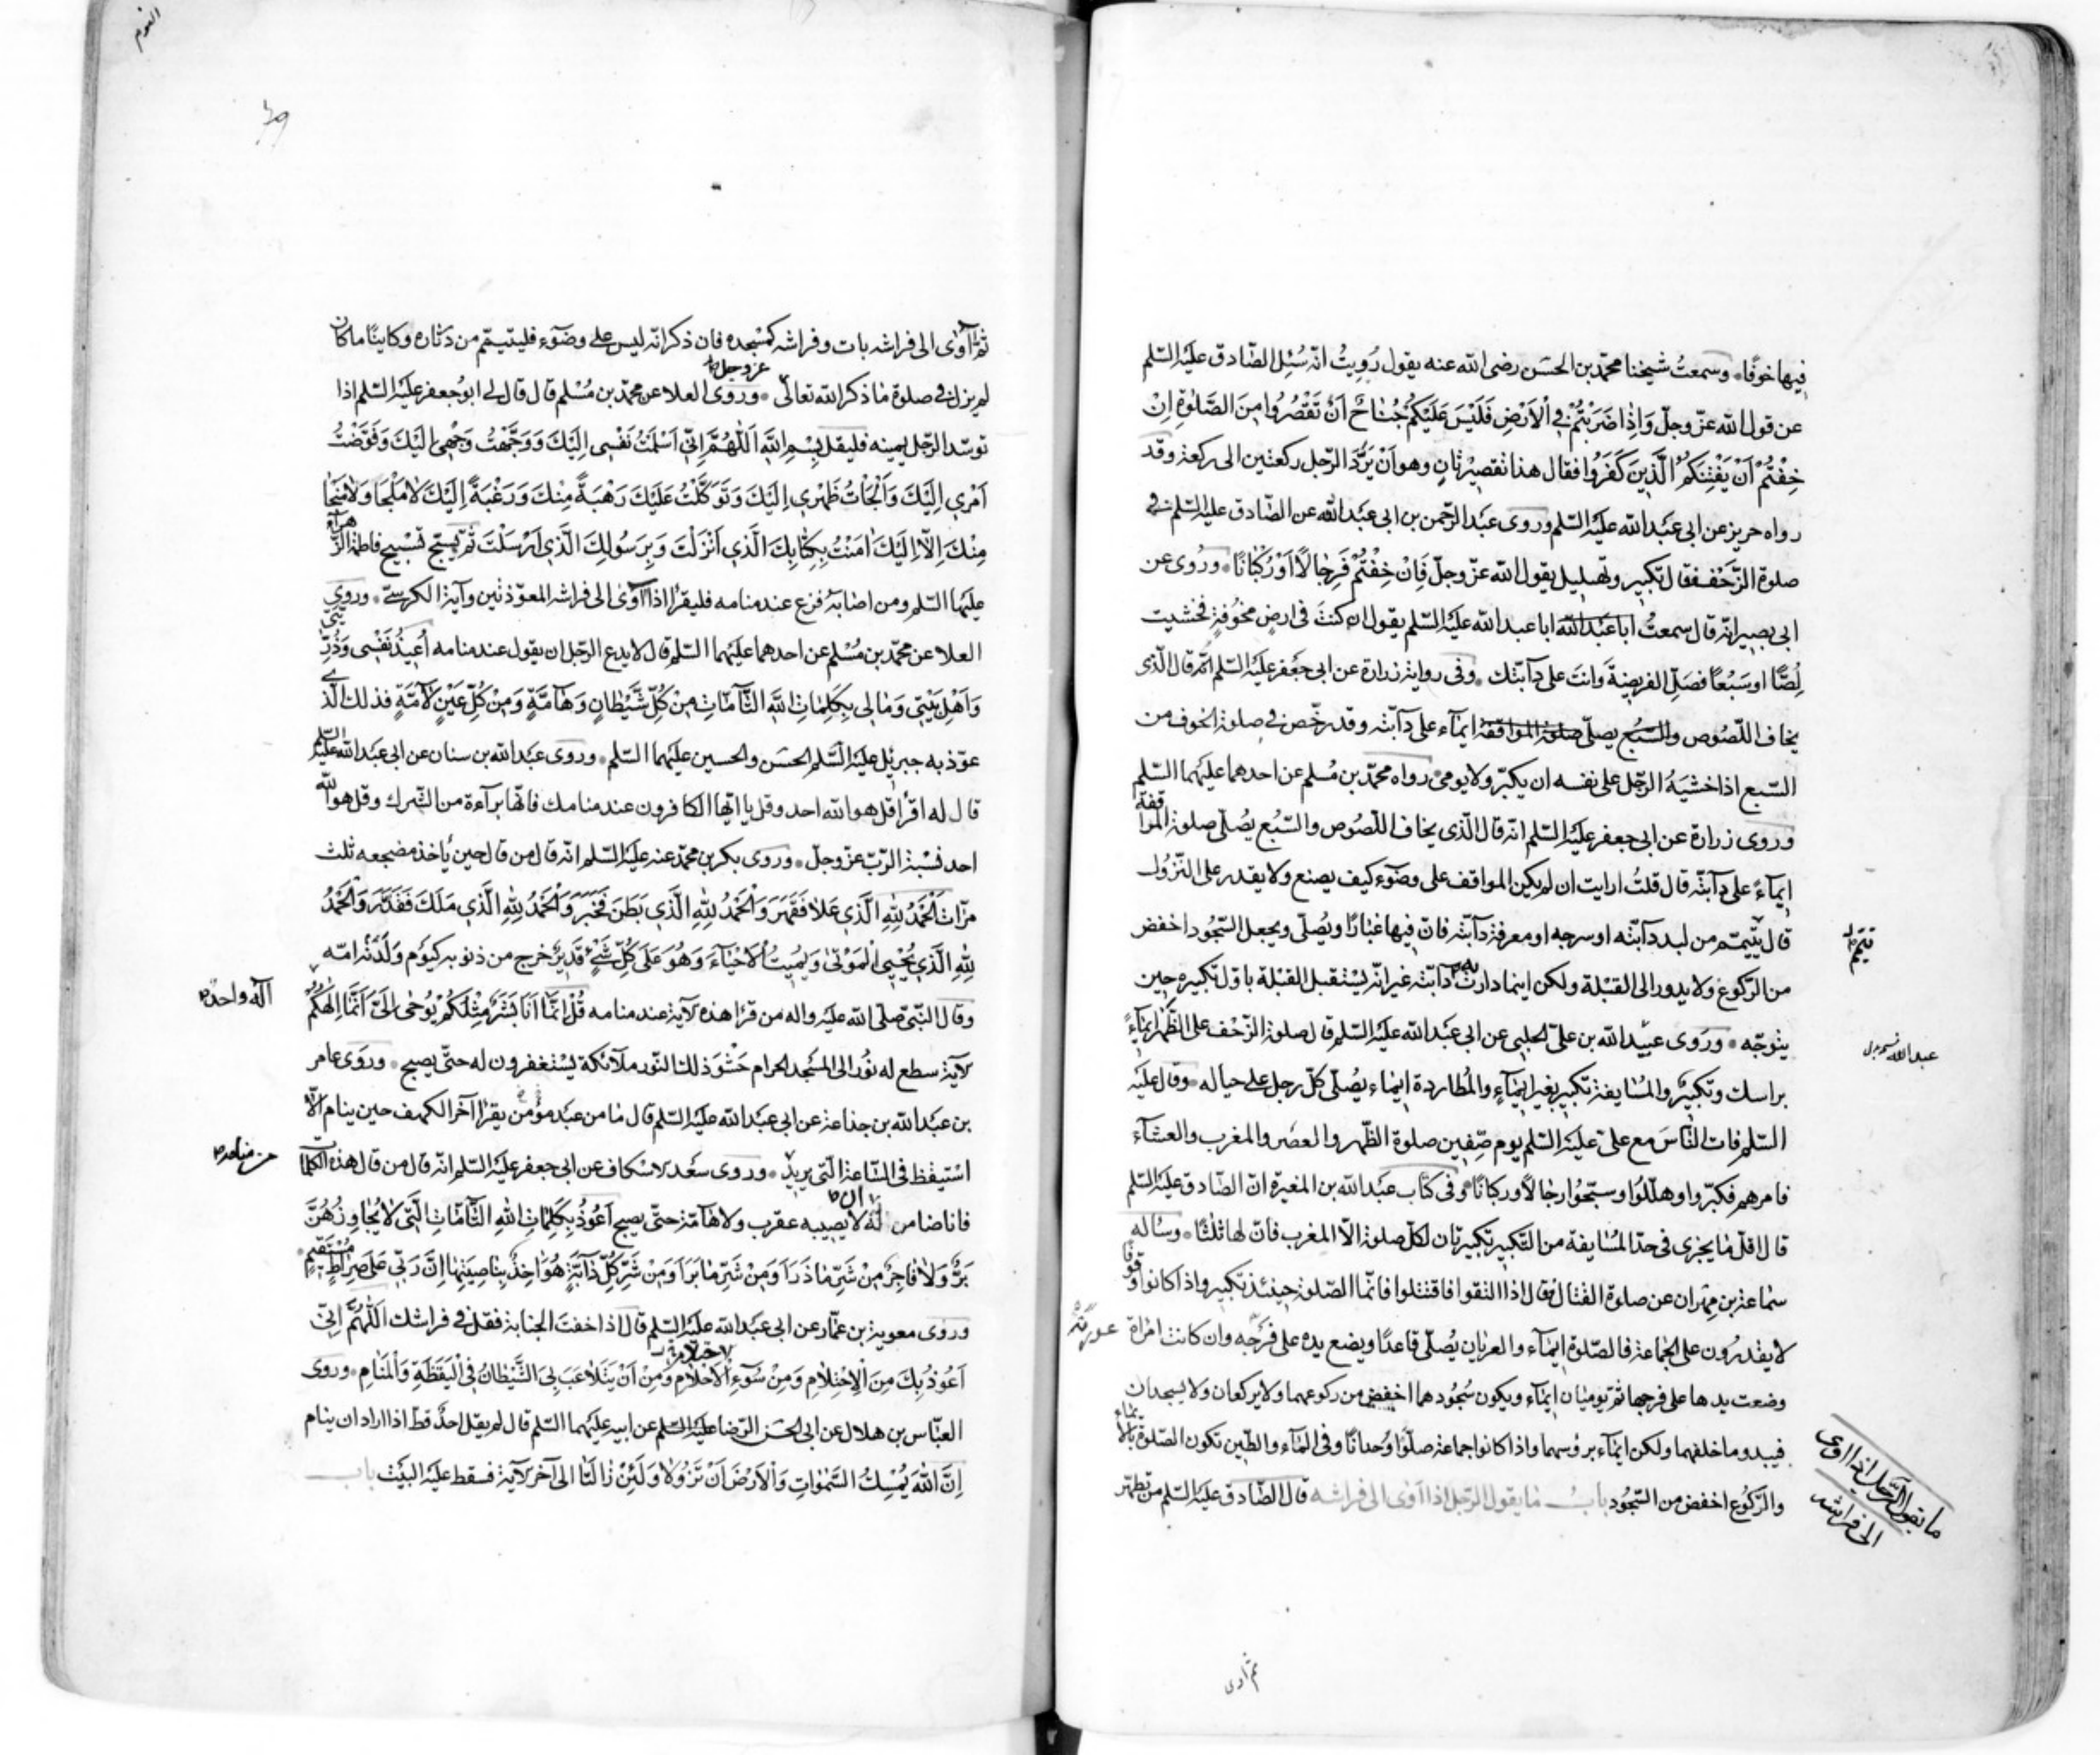 فيها خوفًا۰ وسمعتُ شيخنا محمّد بن الحسَن رضى الله عنه يقول رُوِيتُ انّه سُئِل الصّادق عليه السّلم
عن قول الله عزّ وجلّ وَاِذٰا ضَرَبْتُمْ فِي اْلاَرْضِ فَلَيْسَ عَلَيْكُمْ جُنٰاحٌ اَنْ تَقْصُرُوا مِنَ الصَّلٰوةِ اِنْ
خِفْتُمْ اَنْ يَفْتِنَكُمُ الَّذِينَ كَفَرُوا فقال هذا تقصيرٌ ثانٍ وهو اَنْ يَرُدَّ الرّجل ركعتين الى ركعة وقد
رواه حريز عن ابى عبَد الله عليه السّلم وروى عبَد الرّحمن بن ابى عبَد الله عن الصّادق عليه السّلم فى
صلوة الزّحْف فقال تكبير وتهليل يقول الله عزّ وجلّ فَاِنْ خِفْتُمْ فَرِجٰالًا اَوْ رُكْبٰانًا۰ ورُوى عن
ابى بصير انّه قال سمعتُ ابا عبَد الله ابا عبد الله عليه السّلم يقول ان كنتَ فى ارضٍ مخوُفةٍ فخشيت
لِصًّا او سَبُعًا فصَلِّ الفريضةَ وانتَ على دآبّتك۰ وفى رواية زرارة عن ابى جَعْفر عليه السّلم انّه قال الّذى
يخاف اللّصُوص والسّبُع يصلّى صلوة المواقفة ايمآء على دآبّته وقد رخّص فى صلوة الخوف من
السّبع اذا خشيَهُ الرّجل على نفسه ان يكبّر ولا يومى۰ رواه محمّد بن مُسلم عن احدهما عليهما السّلم
وروى زرارة عن ابى جعفر عليه السّلم انّه قال الّذى يخاف اللّصُوص والسّبُع يصُلّى صلوة المواقفة
ايمآءً على دآبّته قال قلتُ ارايت ان لم يكن المواقف على وضوء كيف يصنع ولا يقدر على النّزُول
قال يتيمّم من لبد دآبّته او سرجه او معرفة دآبّته فانّ فيها غبٰارًا ويُصلّى ويجعل السّجُود اخفض
من الرّكوع ولا يدور الى القبْلة ولكن اينما دارت به دآبّته غير انّه يسْتقبل القبْلة باوّل تكبيرةٍ حين
يتوجّه۰ وروى عبيد الله بن علىّ الحلبى عن ابى عبَد الله عليه السّلم قال صلوة الزّحْف على الظّهْر ايمآءً
براسك وتكبيرٌ والمُسٰايفة تكبير بغير ايمآءٍ والمُطاردة ايمٰاء يصُلّى كلّ رجل على حياله۰ وقال عليه
السّلم فات النّاسَ مع علىّ عليه السّلم يوم صِفّين صلوة الظّهر والعصَر والمغرب والعشآء
فامرهم فكبّروا وهلّلُوا وسبّحُوا رجٰالاً وركبانًا۰ وفى كتاب عبَد الله بن المغيرة انّ الصّادق عليه السّلم
قال اقلّ مٰا يجزى فى حدّ المُسٰايفة من التّكبير تكبيرتان لكلّ صلوة الاّ المغرب فانّ لها ثلثًا۰ وساله
سمٰاعة بن مِهْران عن صلوة القتال فقال اذا التقوا فاقتتلوا فانّما الصّلوة حينئذ تكبير واذا كانوا وقوفًا
لا يقدرُون على الجٰماعة فالصّلوة ايمٰآء والعريان يُصلّى قاعدًا ويضع يده على فرْجه وان كانت امراة
وضعت يدها على فرجها ثم يوميٰان ايمٰآء ويكون سُجُودهما اخفض من ركوعهما ولا يركعان ولا يسجدان
فيبدو ما خلفهما ولكن ايمٰآء برؤسهما واذا كانوا جماعة صلّوا وُحدانًا وفى المآء والطّين تكون الصّلوة بالايماء
والرّكُوع اخفض من السّجُود بابُ مٰا يقول الرّجل اذا آوى الى فراشه قال الصّادق عليه السّلم من تطهّر
عبد الله
ما يقول الرّجل اذا اوى
الى فراشه
ثم اوى
ثم آوٰى الى فراشه بات وفراشه كمسْجده فان ذكر انّه ليس على وضوٓء فليتيمّم من دثاره وكاينًا ما كان
لم يزل فى صلوة مٰا ذكر الله تعالىٰ عزوجل۰ وروى العلا عن محمّد بن مُسْلم قال قال لى ابوُ جعفر عليه السّلم اذا
توسّد الرّجل يمينه فليقل بِسْمِ اللهِ اَللّٰهُمَّ اِنّي اَسْلَمْتُ نَفْسِى اِلَيْكَ وَوَجَّهْتُ وَجْهِى اِلَيْكَ وَفَوَّضْتُ
اَمْرِي اِلَيْكَ وَاَلْجَاْتُ ظَهْرِي اِلَيْكَ وَتَوَكَّلْتُ عَلَيْكَ رَهْبَةً مِنْكَ وَرَغْبَةً اِلَيْكَ لاٰ مَلْجَاَ وَلاٰ مَنْجٰا
مِنْكَ اِلاّٰ اِلَيْكَ اٰمَنْتُ بِكِتٰابِكَ الَّذِي اَنْزَلْتَ وَبِرَسُولِكَ الَّذِي اَرْسَلْتَ ثم يسبّح تسْبيح فاطمة الزّهرآء
عليها السّلم ومن اصابَهُ فزع عند منامه فليقرٰا اذا آوٰى الى فراشه المعوّذتين وآية الكرسىّ۰ وروى
العلا عن محمّد بن مُسْلم عن احدهما عليهما السّلم قال لا يدع الرّجل ان يقول عند منامه اُعِيذُ نَفْسِى وَذُرِّيَّتِي
وَاَهْلَ بَيْتِي وَمٰالِى بِكَلِمٰاتِ اللهِ التّٰآمّٰاتِ مِنْ كُلِّ شَيْطٰانٍ وَهٰآمَّةٍ وَمِنْ كُلِّ عَيْنٍ لاٰمَّةٍ فذلك الّذى
عوّذ به جبرئيل عليه السّلم الحسَن والحسين عليهما السّلم۰ وروى عبَد الله بن سنان عن ابى عبَد الله عليه السّلم
قال له اقرأ قل هو الله احد وقل يا ايّها الكافرون عند منامك فانّها برآءة من الشّرك وقل هو الله
احد نسْبة الرّبّ عزّ وجلّ۰ وروى بكر بن محمّد عنه عليه السّلم انّه قال من قال حين يأخذ مضجعه ثلث
مرّات اَلْحَمْدُ لِلّهِ الَّذِي عَلاٰ فَقَهَرَ وَاَلْحَمْدُ لِلّهِ الَّذِي بَطَنَ فَخَبَرَ وَاَلْحَمْدُ لِلّهِ الَّذِي مَلَكَ فَقَدَرَ وَالْحَمْدُ
لِلّهِ الَّذِي يُحْيِي الْمَوْتىٰ وَيُمِيتُ اْلاَحْيٰآءَ وَهُوَ عَلَى كُلِّ شَيْءٍ قَدِيرٌ خرج من ذنوبه كيَوم وَلَدَتْه امّه
وقال النّبىّ صلّى الله عليه واله من قرٰا هذه لآية عند منامه قُلْ اِنَّمٰا اَنَا بَشَرٌ مِثْلُكُمْ يُوحٰى اِلَىَّ اَنَّمٰا اِلٰهُكُمْ
لآية سطع له نُور الى المسْجد الحرام حَشْوَ ذلك النّور ملآئكة يسْتغفرون له حتّى يصبح۰ وروى عامر
بن عبَد الله بن جذاعة عن ابى عبَد الله عليه السّلم قال مٰا من عبَد مؤمن يقرٰا آخر الكهف حين ينام الاّ
اسْتيقظ فى السّاعة الّتى يريد۰ وروى سعْد لاسكاف عن ابى جعفر عليه السّلم انّه قال من قال هذه الكلمات
فانا ضامن له الا يصيبه عقرب ولا هآمّة حتّى يصبح اَعُوذُ بِكَلِمٰاتِ اللهِ التّٰآمّٰاتِ الَّتِي لاٰ يُجٰاوِزُهُنَّ
بَرٌّ وَلاٰ فٰاجِرٌ مِنْ شَرِّ مٰا ذَرَاَ وَمِنْ شَرِّ مٰا بَرَاَ وَمِنْ شَرِّ كُلِّ دٰآبَّةٍ هُوَ اٰخِذٌ بِنٰاصِيَتِهٰا اِنَّ رَبّي عَلَى صِرٰاطٍ مُسْتَقِيمٍ۰
وروى معوية بن عمّار عن ابى عبَد الله عليه السّلم قال اذا خفتَ الجنابة فقل فى فراشك اَللّٰهُمَّ اِنّي
اَعُوذُ بِكَ مِنَ اْلاِحْتِلاٰمِ وَمِنْ سُوٓءِ اْلاَحْلاٰمِ وَمِنْ اَنْ يَتَلاٰعَبَ بِىَ الشَّيْطٰانُ فِي اْليَقَظَةِ وَاْلمَنٰامِ۰ وروى
العبّاس بن هلال عن ابى الحسَن الرّضا عليه السّلم عن ابيه عليهما السّلم قال لم يقل احدٌ قطّ اذا اراد ان ينام
اِنَّ اللهَ يُمْسِكُ السَّمٰوٰاتِ وَالْاَرْضَ اَنْ تَزُولاٰ وَلَئِنْ زٰالَتٰا الى آخر لآية فسقط عليه البيَت باب
آله واحد
من منامه